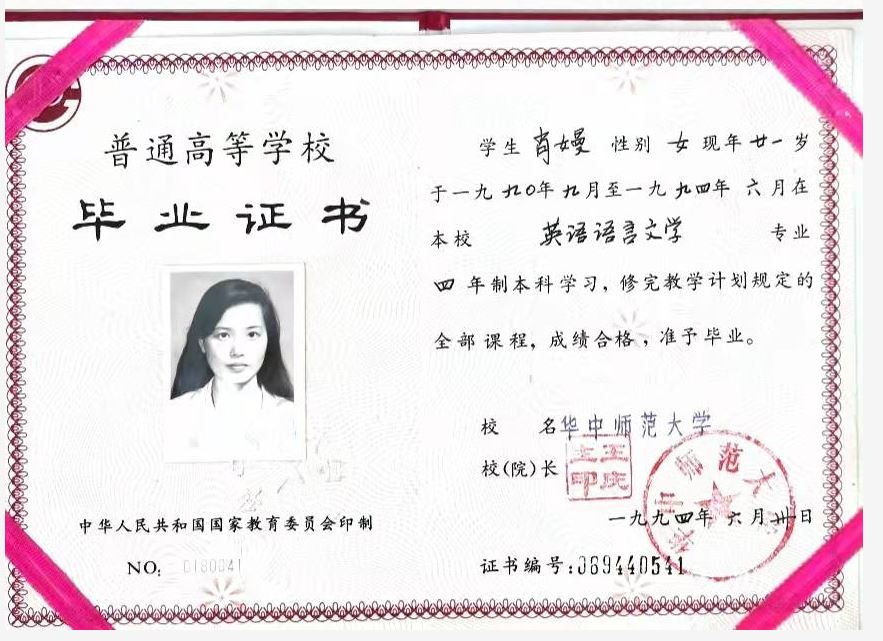 普通高等学校
毕业证书
中华人民共和国国家教育委员会印制
NO: 0180041
学生 肖嫚 性别 女 现年 廿一 岁
于一九九0年九月至一九九四年 六月在
本校 英语语言文学 专业
四 年制本科学习，修完教学计划规定的
全部课程，成绩合格，准予毕业。
校 名 华中师范大学
校(院)长
一九九四年 六月卅日
证书编号:069440541